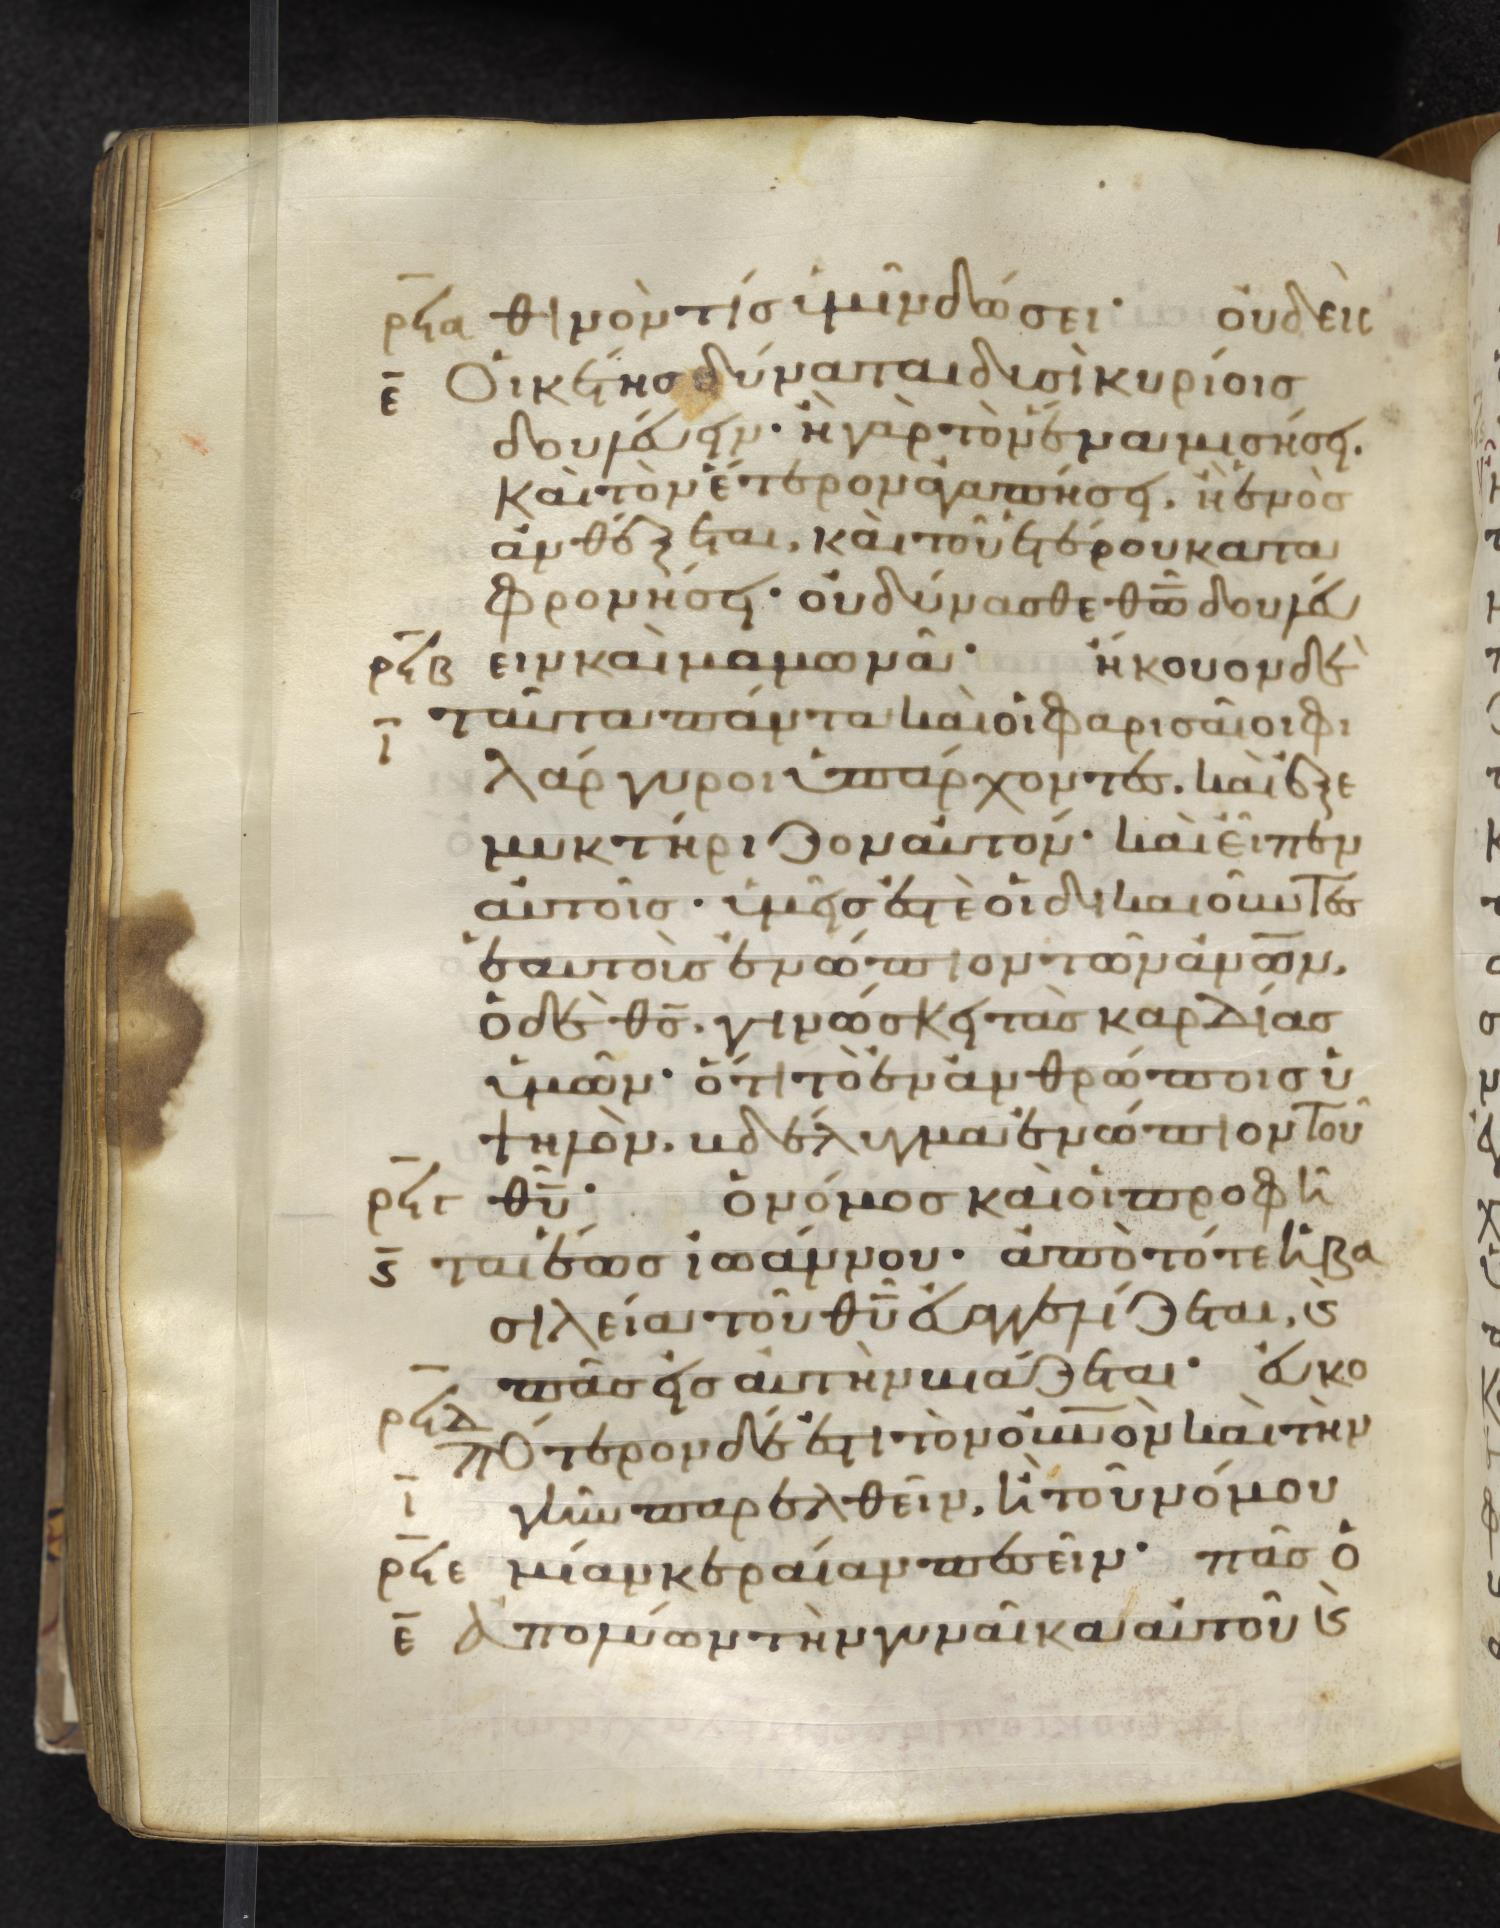 ρϟα θινὸν τίς ὑμῖν δώσει· οὐδεὶς
ε̄ Οἰκέτης δύναται δυσὶ κυρίοις
δουλεύειν· ἢ γὰρ τὸν ἕνα μισήσει.
καὶ τὸν ἕτερον ἀγαπήσει. ἢ ἑνὸς
ἀνθέξεται, καὶ τοῦ ἑτέρου κατα
φρονήσει· οὐ δύνασθε θω̄ δουλεύ
ρϟβ ειν καὶ μαμωνᾶ· ἤκουον δὲ
ῑ ταῦτα πάντα καὶ οἱ φαρισαῖοι φι
λάργυροι ὑπάρχοντες. καὶ ἐξε
μυκτήριζον αὐτόν· καὶ εἶπεν
αὐτοῖς· ὑμεῖς ἐστὲ οἱ δικαιοῦντες
ἑαυτοὺς ἐνώπιον τῶν ἀνω̄ν.
ὁ δὲ θς̄. γινώσκει τὰς καρδίας
ὑμῶν· ὅτι τὸ ἐν ἀνθρώποις ὑ
ψηλὸν. βδέλυγμα ἐνώπιον τοῦ
ρϟγ θῡ· ὁ νόμος καὶ οἱ προφῆ
ς̄ ται ἕως ἰωάννου· ἀπὸ τότε ἡ βα
σιλεία τοῦ θῡ εὐαγγελίζεται, ϗ
πᾶς εἰς αὐτὴν βιάζεται· εὐκο
ρϟδ πότερον δέ ἐστι τὸν οὐν̄ον καὶ τὴν
ῑ γῆν παρελθεῖν, ἢ τοῦ νόμου
ρϟε μίαν κεραίαν πεσεῖν· πᾶς ὁ
ε̄ ἀπολύων τὴν γυναῖκα αὐτοῦ ϗ